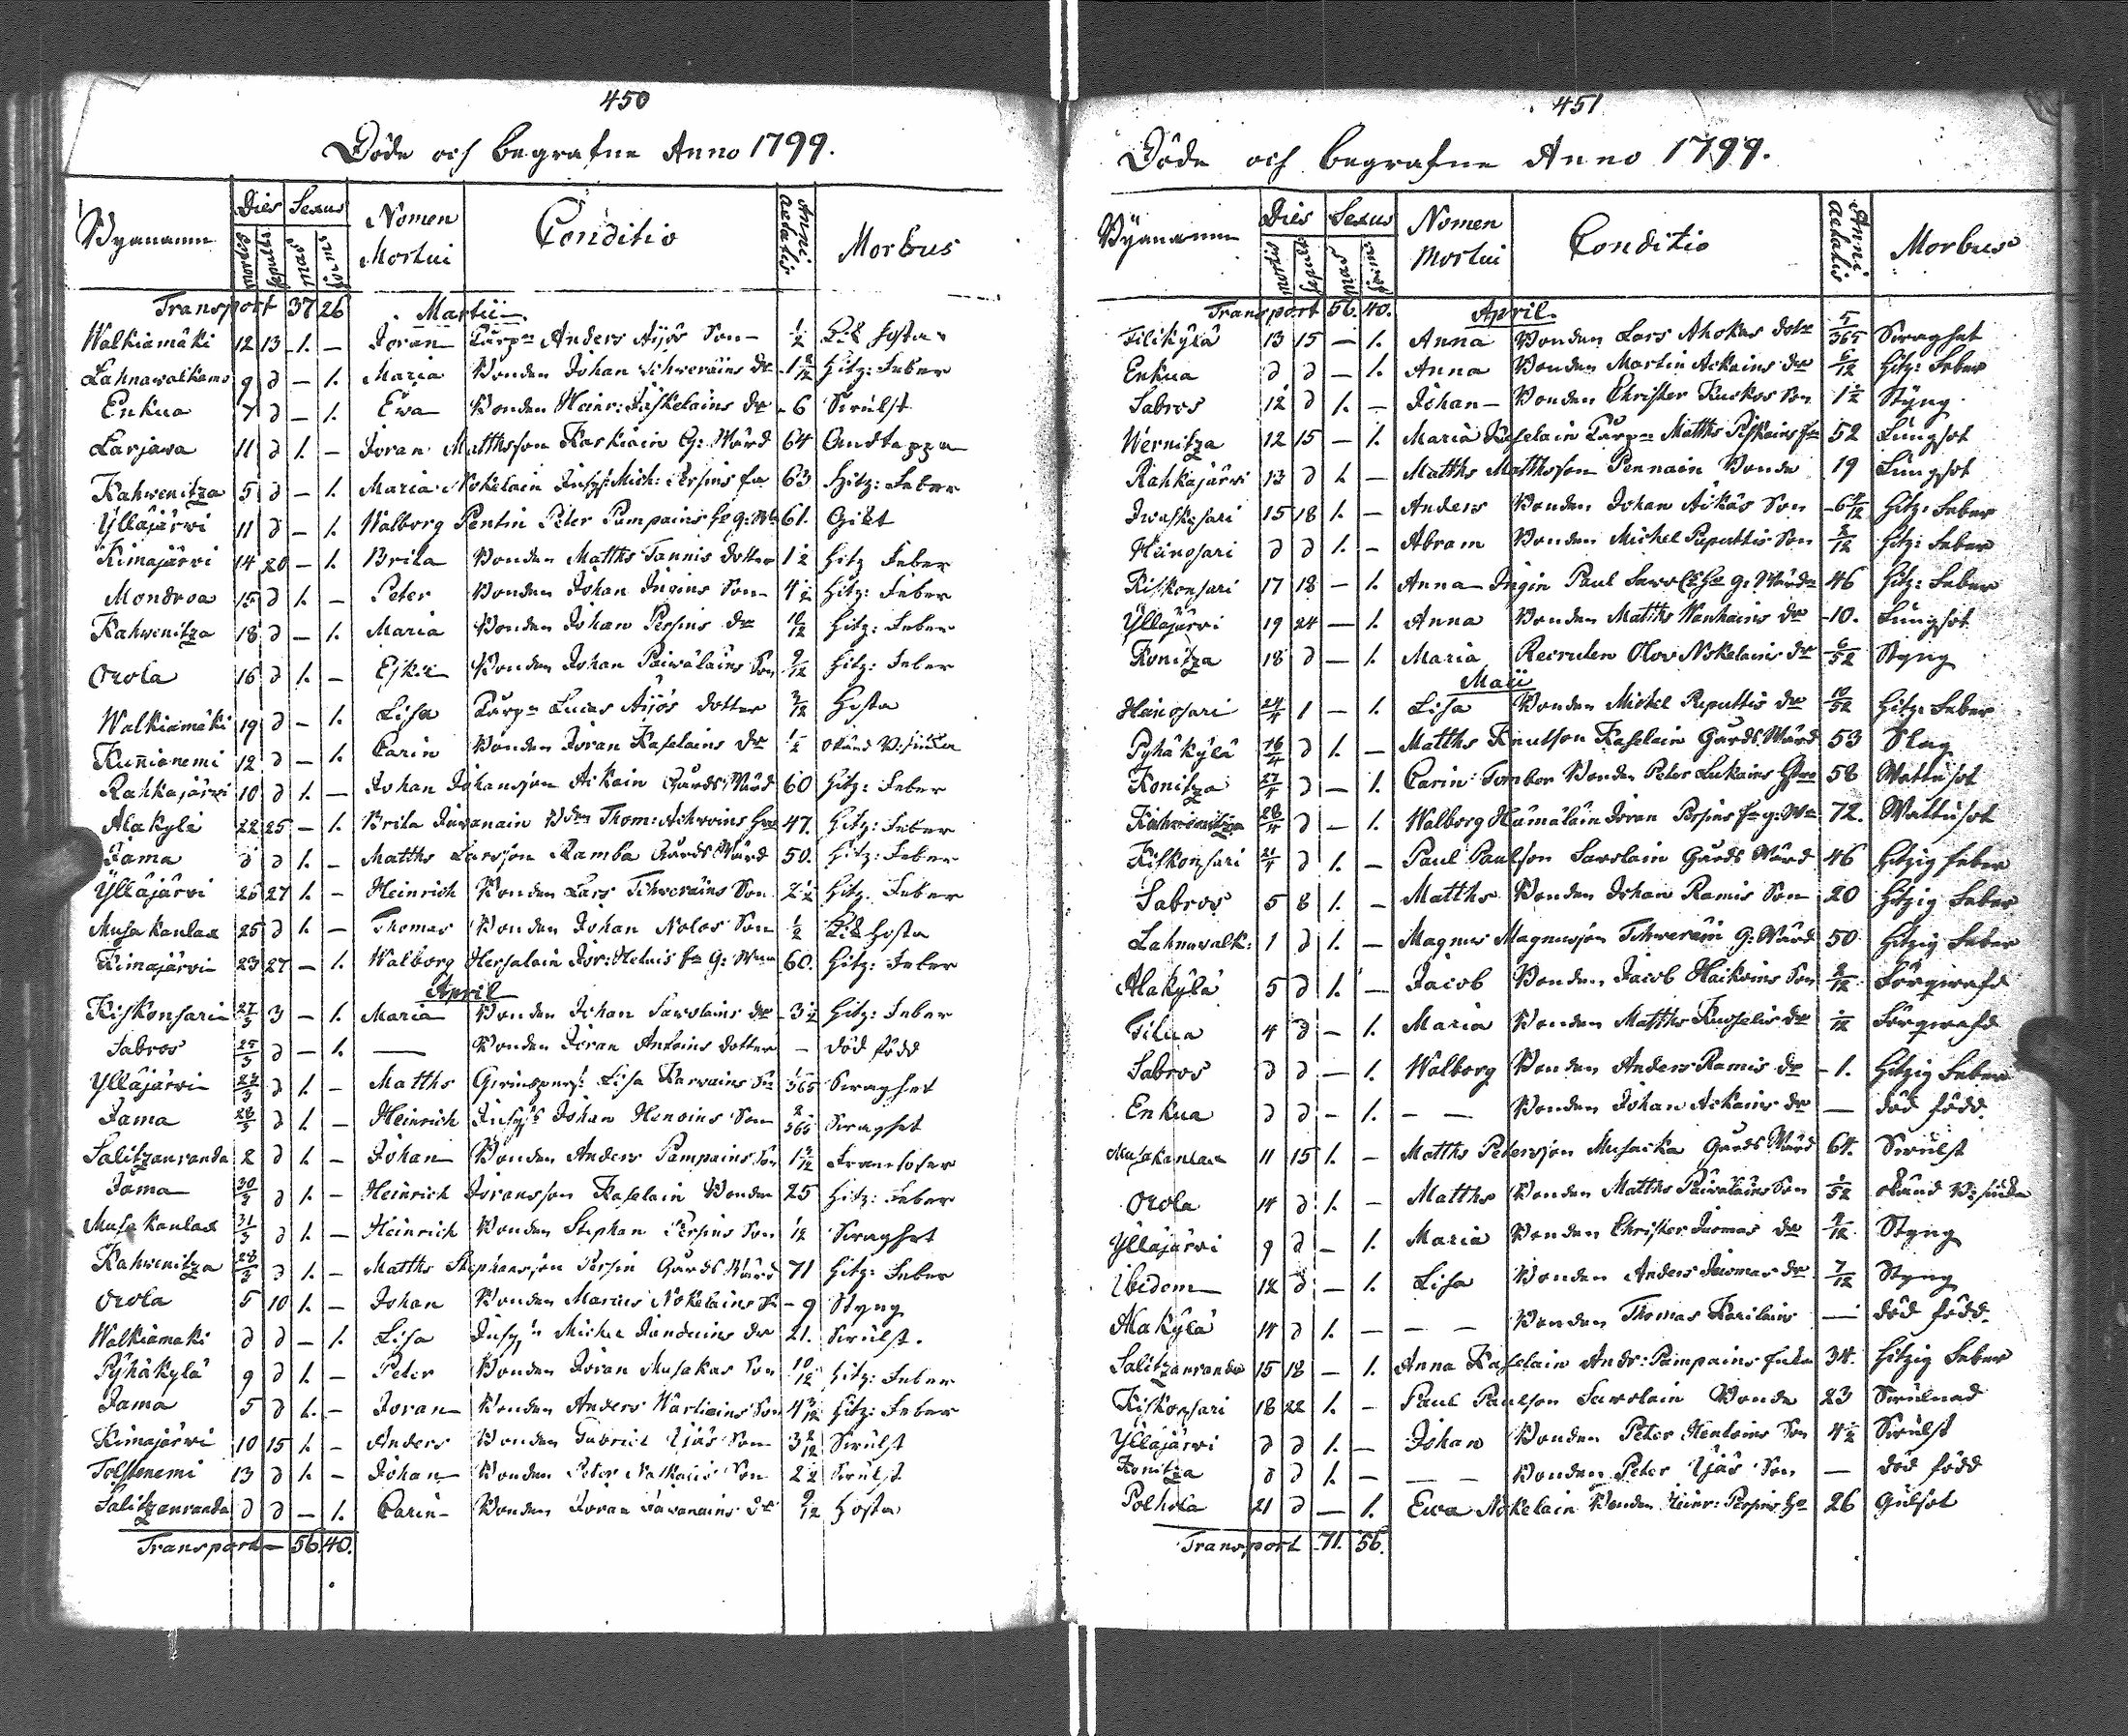 450
Döde och begrafne Anno 1799.
Byanamn Dies Sexus Nomen Mortui Conditio Anni aetatis Morbus
mortis sepult: mas foem:
Transport 37 26 Martii
Walkiamäki 12 13 1. — Joran Anders Äijös Son 1/2 hosta
Lahnawalkama 9 d — 1. Maria Bonden Johan Schweräins dr 1 Hitz: Feber
Enkua 7 d — 1. Ewa Bonden Heinr: Jäskelains dr 6 Swulst
Larjawa 11 d 1. — Joran Matthsson Kaskiain G: Wärd 64 Andtäppa
Kahwenitza 5 d — 1. Maria Nokelain Mich: Persins 63 Hitz: Feber
Ylläjärwi 11 d — 1. Walborg Pentin Peter Pumpains 61. Gikt
Kimajärwi 14 20 — 1. Brita Bonden Matths Tannis dotter 1 1/2 Hitz Feber
Mondroa 15 d 1. — Peter Bonden Johan Ingins Son 4 1/2 Hitz: Feber
Kahwenitza 18 d — 1. Maria Bonden Johan Persins dr 10/12 Hitz: Feber
Orola 16 d 1. — Eskil Bonden Johan Päiwäläins Son 9/12 Hitz: Feber
Walkiamäki 19 d — 1. Lisa Lucas Äijös dotter 3/12 Hosta
Kunnianemi 12 d — 1. Carin Bonden Joran Kaselains dr 1/2 okänd
Rahkajärwi 10 d 1. — Johan Johansson Ackain Gårds Wärd 60 Hitz: Feber
Alakylä 22 25 — 1. Brita Juwanain Thom: 47. Hitz: Feber
Jama d d 1. — Matths Larsson Ramba Gårds Wärd 50. Hitz: Feber
Ylläjärwi 26 27 1. — Heinrich Bonden Lars Schweräins Son 2 1/2 Hitz. Feber
Musakanlax 25 d 1. — Thomas Bonden Johan Nolos Son 1/2 Hosta
Kimajärwi 23 27 — 1. Walborg 60. Hitz: Feber
April
Kiskonsari 27/3 3 — 1. Maria Bonden Johan Sawolains dr 3 1/2 Hitz: Feber
Sabros 25/3 d — 1. — Bonden Joran Antoins dotter — död född
Ylläjärwi 27/3 d 1. — Matths Lisa 1/365 Swaghet
Jama 28/3 d 1. — Heinrich Johan Henoins Son 2/365 Swaghet
Salitzanranda 2 d 1. — Johan Bonden Anders Pumpains Son 1 Fransoser
Jama 30/3 d 1. — Heinrich Joransson Kaselain Bonde 25 Hitz: Feber
Musakanlax 31/3 d 1. — Heinrich Bonden Stephan Persins Son 1/12 Swaghet
Kahwenitza 28/3 d 1. — Matths Stephansson Persin Gårds Wärd 71 Hitz: Feber
Orola 5 10 1. — Johan Bonden Marcus Nokelains Sn 9 Styng
Walkiamäki d d — 1. Lisa Michel dr 21. Swulst.
Pyhäkylä 9 d 1. — Peter Bonden Joran Musakas Son 10/12 Hitz: Feber
Jama 5 d 1. — Joran Bonden Anders Wärtiains Son 4 Hitz: Feber
Kimajärwi 10 15 1. — Anders Bonden Gabriel Ijäs Son 3 2/12 Swulst
Tolstonemi 13 d 1. — Johan Bonden Peter Son 2 1/2 Swulst
Salitzanranda d d — 1. Carin Bonden Joran Jawanains dr 9/12 Hosta
Transport — 56 40.
451
Döde och begrafne Anno 1799.
Byanamn Dies Sexus Nomen Mortui Conditio Anni aetatis Morbus
mortis sepult mas foem:
Transport 56. 40. April.
Tilikylä 13 15 — 1. Anna Bonden Lars Ahokas dotr 5/365 Swaghet
Enkua d d — 1. Anna Bonden Martin Ackains dr 6/12 Hitz: Feber
Sabros 12 d 1. — Johan Bonden Christer Kuckos Son 1 1/2 Styng
Wernitza 12 15 — 1. Maria Kaselain Matths 52 Lungsot
Rahkajärwi 13 d 1. — Matths Matthsson Pennain Bonde 19 Lungsot
Iwaskesari 15 18 1. — Anders Bonden Johan Äikäs Son 6 Hitz: Feber
Heinosari d d 1. — Abram Bonden Michel Reputtis Son Hitz: Feber
Kiskonsari 17 18 — 1. Anna Ingin Paul 46 Hitz: Feber
Ylläjärwi 19 24 — 1. Anna Bonden Matths Wanhains dr 10. Lungsot
Konitza 18 d — 1. Maria Recruten Olov Nokelains dr 6/52 Styng
Maii
Heinosari 24/4 1 — 1. Lisa Bonden Michel Reputtis dr 10/52 Hitz: Feber
Pyhäkylä 16/4 d 1. — Matths Knutsson Kaselain Gårds Wärd 53 Slag
Konitza 27/4 d — 1. Carin Tombor Bonden Peter Lukains 58 Wattusot
Kahwenitza 28/4 d — 1. Walborg Hämäläin Joran Persins 72. Wattusot
Kiskonsari 21/4 d 1. — Paul Paulsson Sawolain Gårds Wärd 46 Hitzig feber
Sabros 5 8 1. — Matths Bonden Johan Ramis Son 20 Hitzig Feber
Lahnawalk: 1 d 1. — Magnus Magnusson Schweräin G: Wärd 50 Hitzig Feber
Alakylä 5 d 1. — Jacob Bonden Jacob Haikoins Son 2/12 Förqwafd
Tilua 4 d — 1. Maria Bonden Matths Kuoselis dr 1/12 Förqwafd
Sabros d d — 1. Walborg Bonden Anders Ramis dr 1. Hitzig Feber
Enkua d d — 1. — — Bonden Johan Ackains dr — död född.
Musakanlax 11 15 1. — Matths Petersson Musacka Gårds Wärd 64. Swulst
Orola 14 d 1. — Matths Bonden Matths Päiwäläins Son 1/52 okänd
Ylläjärwi 9 d — 1. Maria Bonden Christer Juomas dr 4/12 Styng
Ibidem 12 d — 1. Lisa Bonden Anders Juomas dr 7/12 Styng
Alakylä 14 d 1. — — — Bonden Thomas Karilains — död född
Salitzanranda 15 18 — 1. Anna Kaselain Andr: Pumpains Enka 34. Hitzig Feber
Kiskonsari 18 22 1. — Paul Paulsson Sawolain Bonde 23 Swulnad
Ylläjärwi d d 1. — Johan Bonden Peter Hentoins Son 4 1/2 Swulst
Konitza d d 1. — — — Bonden Peter Ijäs Son — död född
Polhola 21 d — 1. Ewa Nokelain Bonden Heinr: Persins 26 Gulsot
Transport 71. 56.